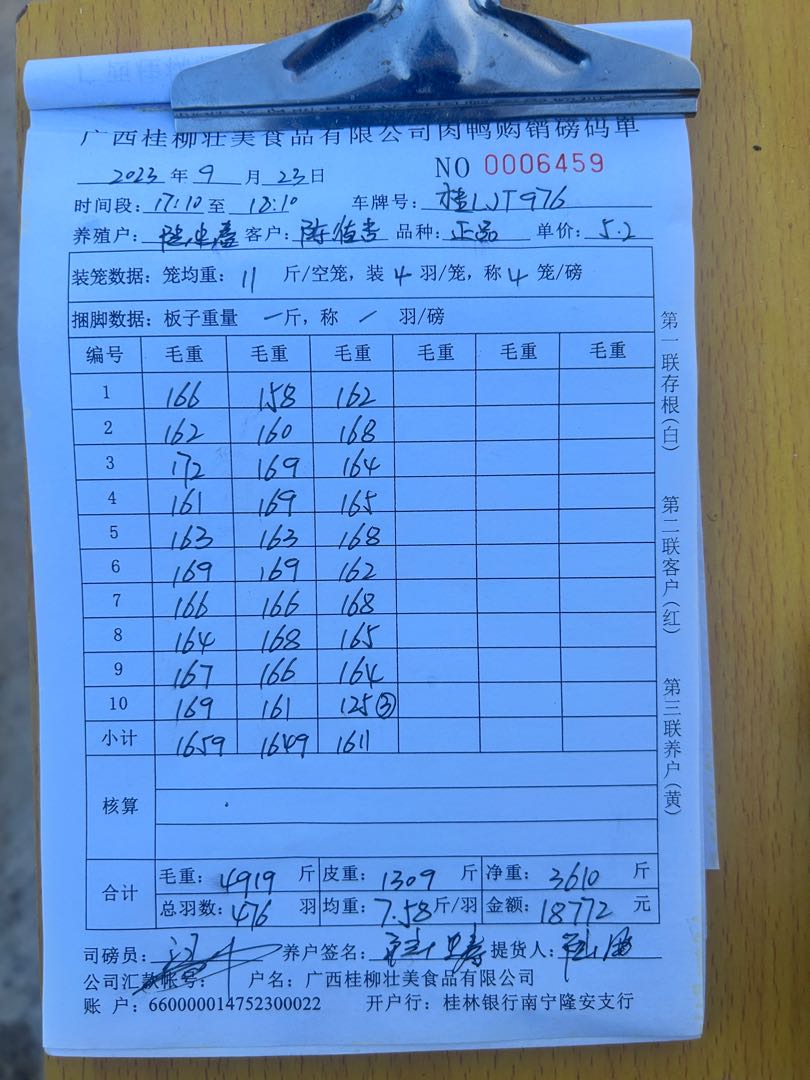 广西桂柳壮美食品有限公司肉鸭购销磅码单
2023 年 9 月 23 日 NO 0006459
时间段: 17:10 至 18:10 车牌号: 桂LJT976
养殖户: 客户: 品种: 正品 单价: 5.2
装笼数据: 笼均重: 11 斤/空笼, 装 4 羽/笼, 称 4 笼/磅
捆脚数据: 板子重量 一 斤, 称 / 羽/磅
编号 毛重 毛重 毛重 毛重 毛重 毛重
1 166 158 162
2 162 160 168
3 172 169 164
4 161 169 165
5 163 163 168
6 169 169 162
7 166 166 168
8 164 168 165
9 167 166 164
10 169 161 125③
小计 1659 1649 1611
核算
合计 毛重: 4919 斤 皮重: 1309 斤 净重: 3610 斤
总羽数: 476 羽 均重: 7.58 斤/羽 金额: 18772 元
司磅员: 养户签名: 提货人:
公司汇款帐号: 户名: 广西桂柳壮美食品有限公司
账 户: 660000014752300022 开户行: 桂林银行南宁隆安支行
第一联存根(白) 第二联客户(红) 第三联养户(黄)